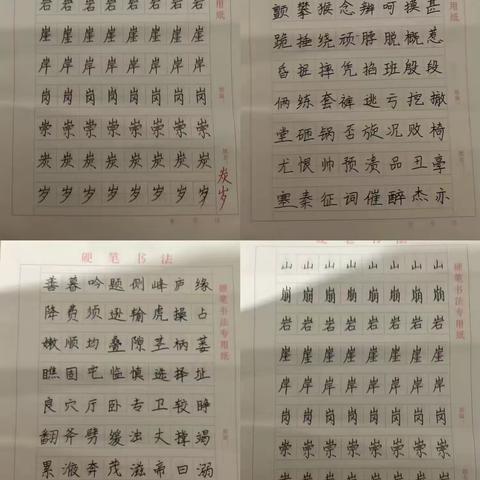 岩岩岩岩岩岩岩岩
崖崖崖崖崖崖崖崖
岸岸岸岸岸岸岸岸
岗岗岗岗岗岗岗岗
崇崇崇崇崇崇崇崇
炭炭炭炭炭炭炭炭
炭岁
岁岁岁岁岁岁岁岁
颤攀猴念辫呵摸甚
跪捶绕顽脖脱概惹
昏摔凭掐班殷段
俩练套裤逃亏挖撤
堂砸锅否旋况败椅
尤恨帅预渍品丑毫
塞秦征词催醉杰亦
硬笔书法
善暮吟题侧峰庐缘
降费须逊输虎操占
嫩顺均叠隙茎柄萎
瞧固宅临慎选择址
良穴厅卧专卫较睁
翻斧劈缓浊丈撑竭
累滋帝曰溺奔茂
硬笔书法专用纸
山山山山山山山山
崩崩崩崩崩崩崩崩
岩岩岩岩岩岩岩岩
崖崖崖崖崖崖崖崖
岸岸岸岸岸岸岸岸
岗岗岗岗岗岗岗岗
崇崇崇崇崇崇崇崇
硬笔书法专用纸